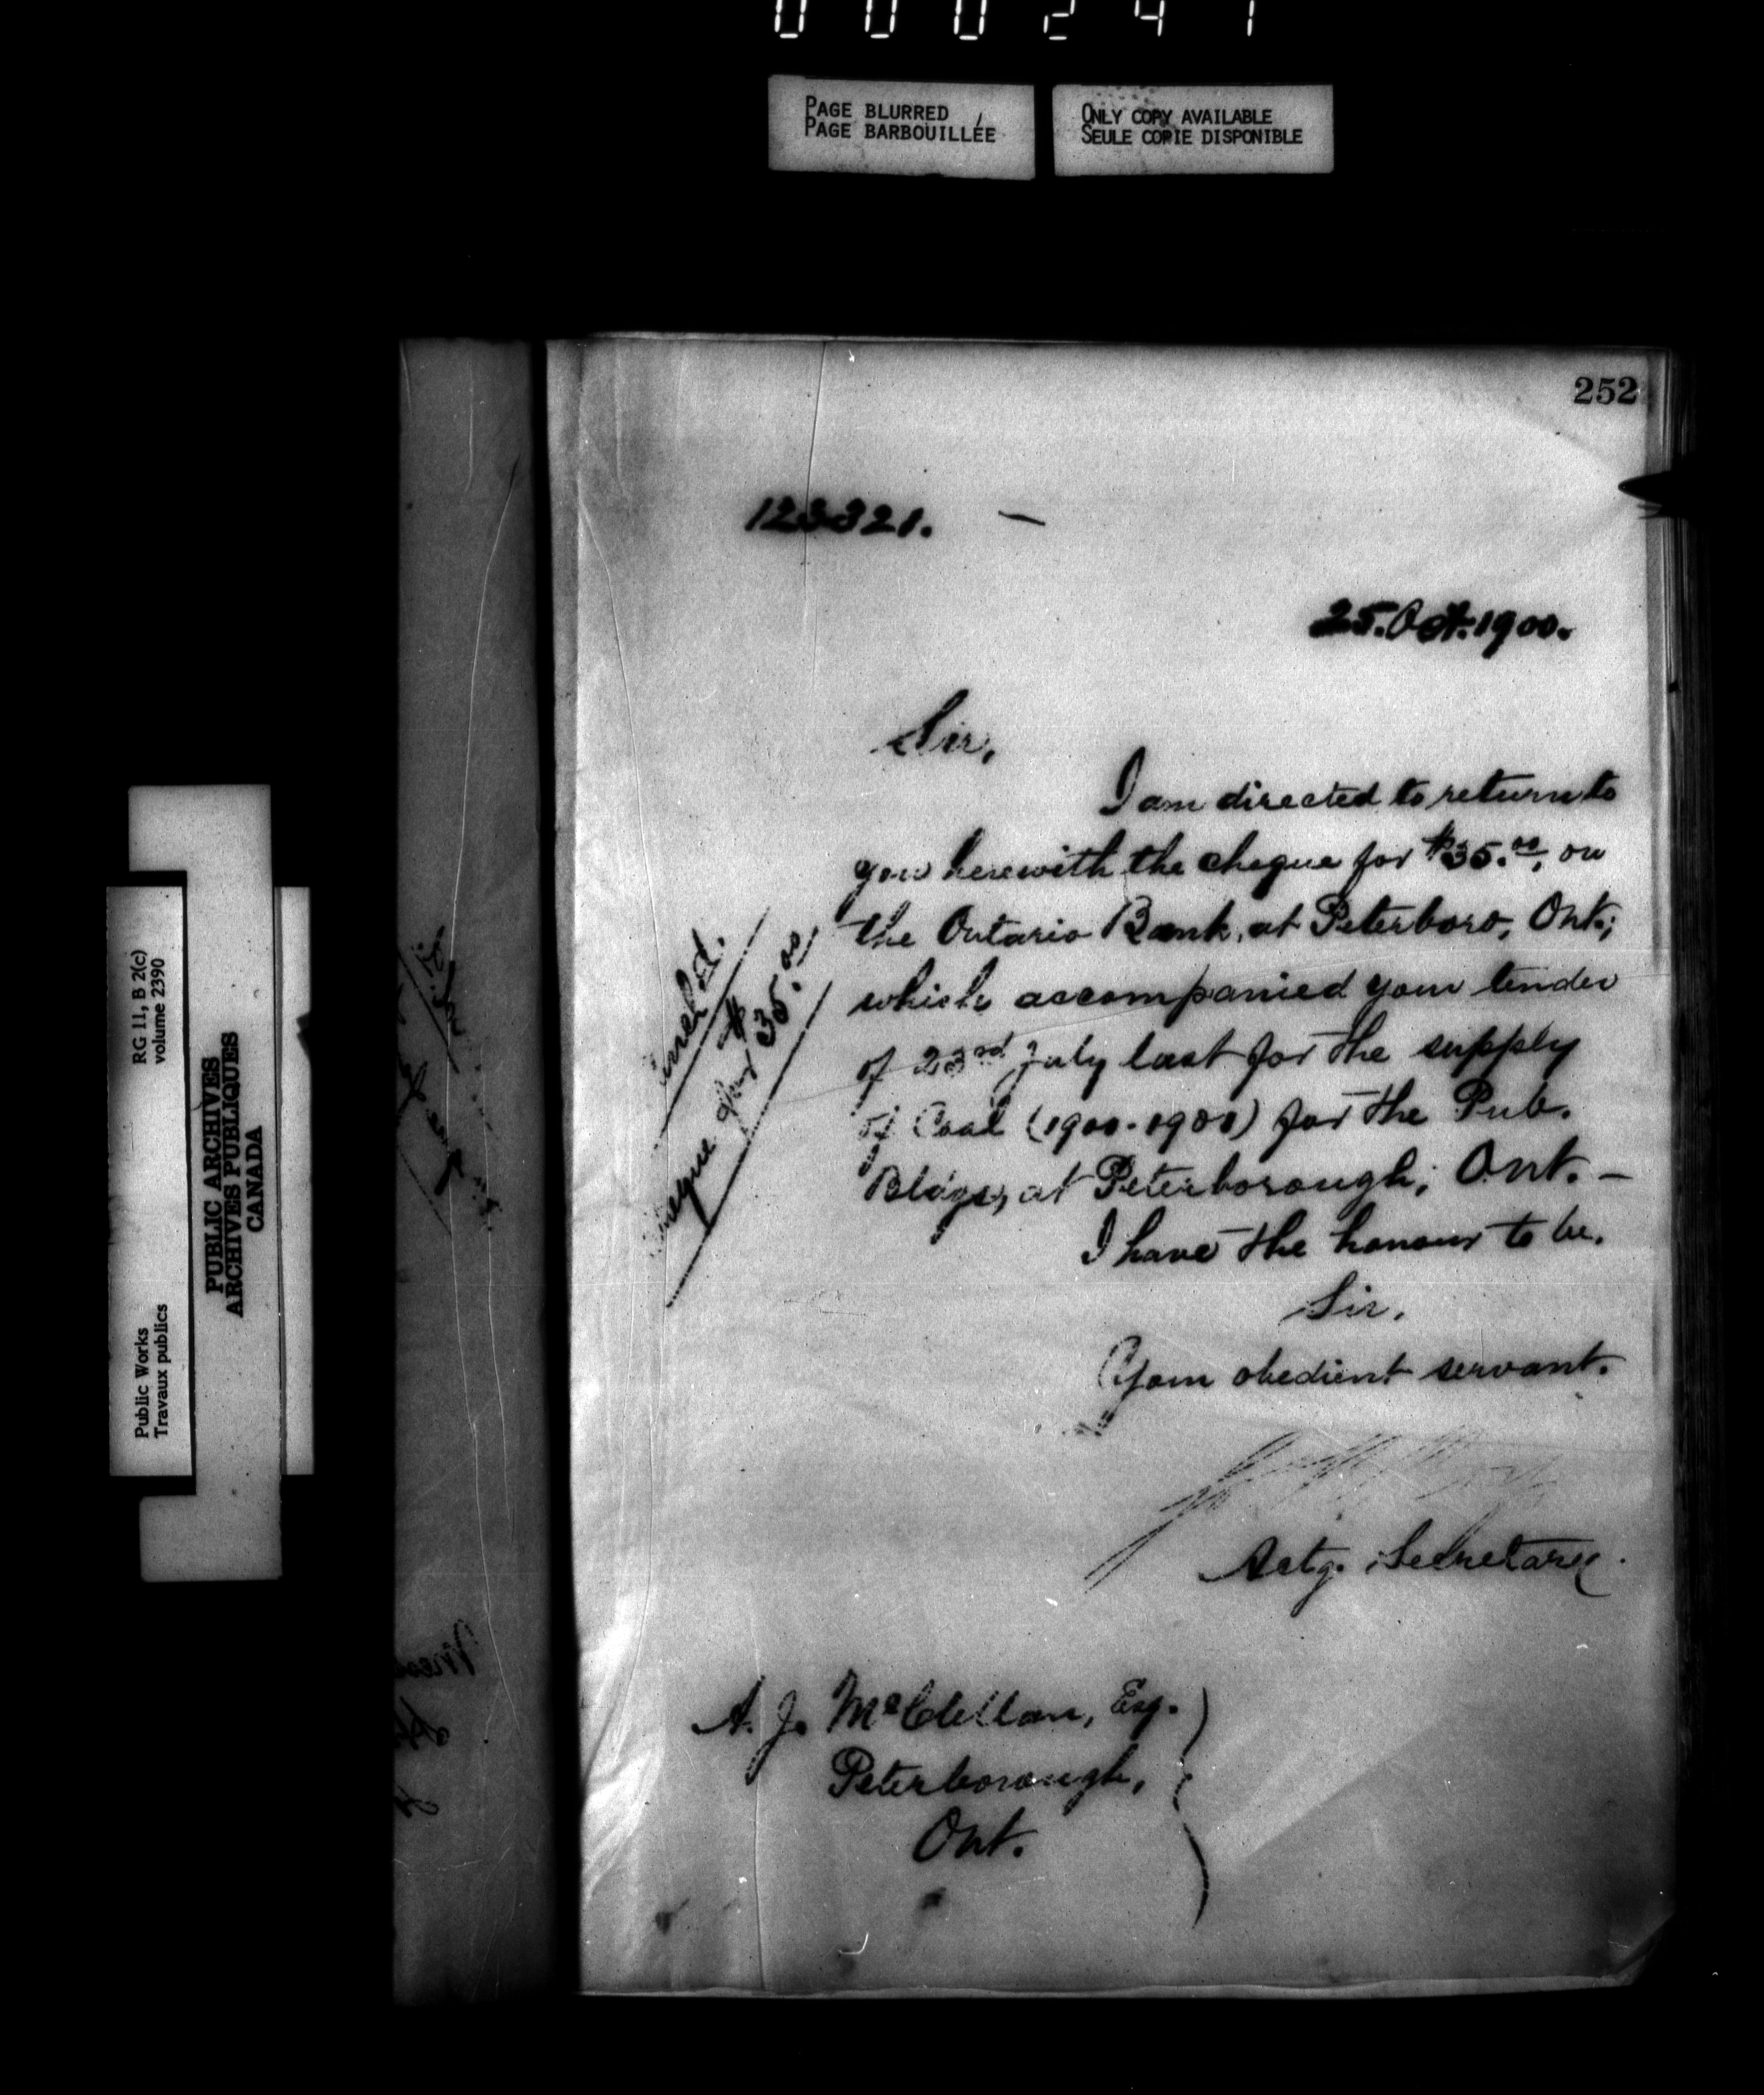 000241
PAGE BLURRED
PAGE BARBOUILLÉE
ONLY COPY AVAILABLE
SEULE COPIE DISPONIBLE
252
123321. –
25. Oct. 1900.
Sir,
I am directed to return to
you herewith the cheque for $35.00, on
the Ontario Bank, at Peterboro, Ont;
which accompanied your tender
of 23rd July last for the supply
of Coal (1900-1901) for the Pub.
Bldgs, at Peterborough, Ont. –
I have the honour to be,
Sir,
Your obedient servant.
Actg. Secretary.
A. J. McClellan, Esq.
Peterborough,
Ont.
cheque for $35.00
RG 11, B 2(c)
volume 2390
Public Works
Travaux publics
PUBLIC ARCHIVES
ARCHIVES PUBLIQUES
CANADA